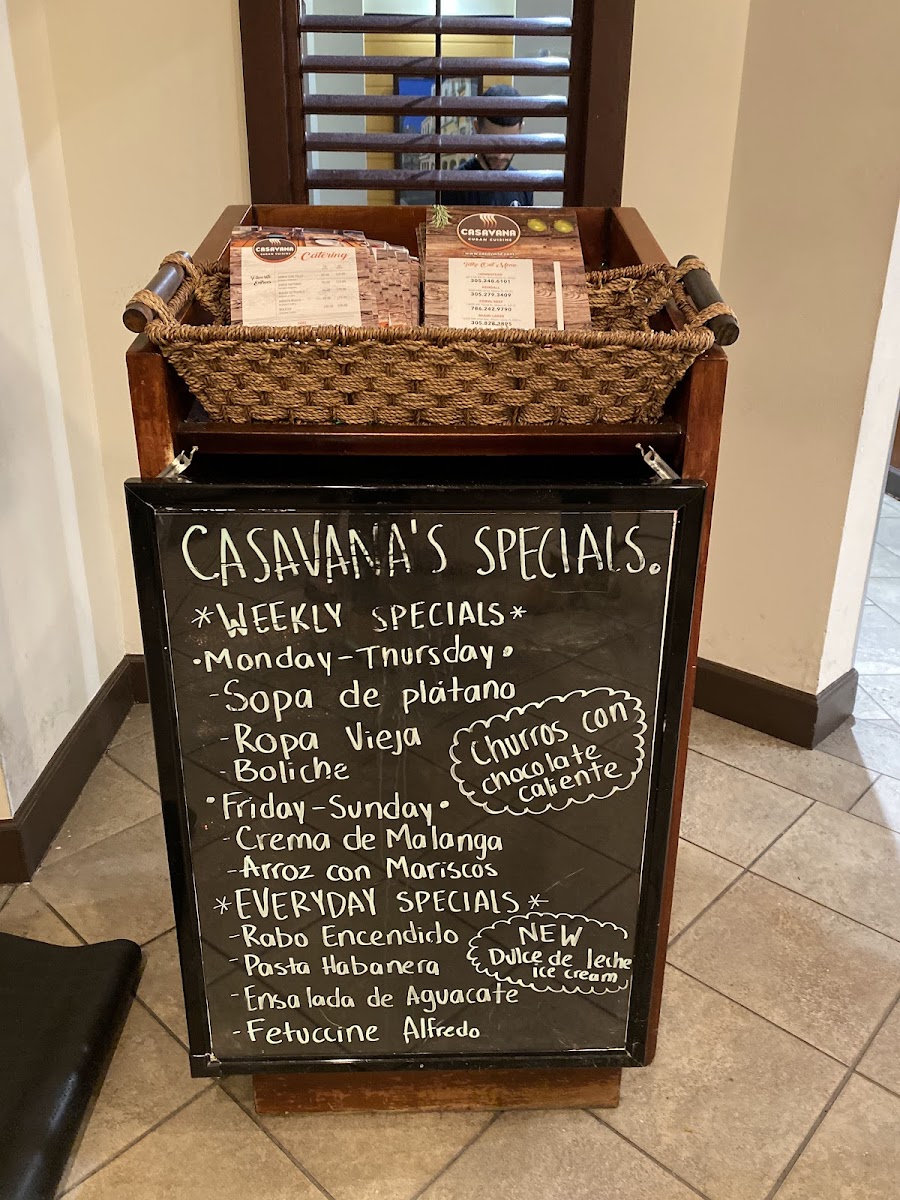 CASAVANA
CUBAN CUISINE
Catering
CASAVANA
CUBAN CUISINE
305.248.6101
305.279.3409
786.242.9790
CASAVANA'S SPECIALS.
*WEEKLY SPECIALS*
•Monday-Thursday•
-Sopa de plátano
-Ropa Vieja
-Boliche
Churros con
chocolate
caliente
•Friday-Sunday•
-Crema de Malanga
-Arroz con Mariscos
*EVERYDAY SPECIALS*
-Rabo Encendido
-Pasta Habanera
-Ensalada de Aguacate
-Fetuccine Alfredo
NEW
Dulce de leche
ice cream